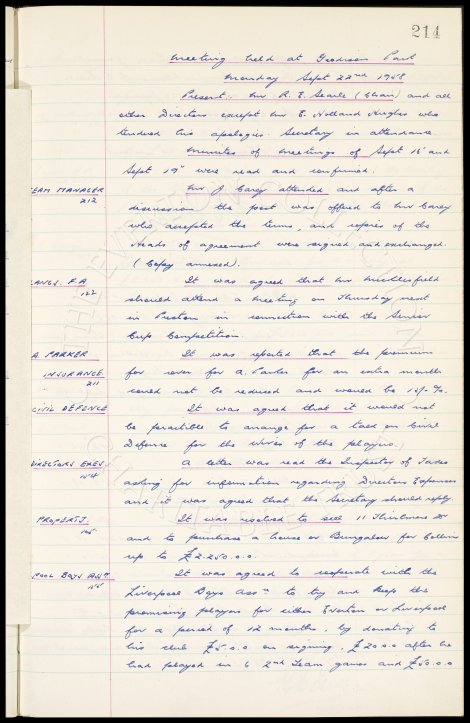 214
Meeting held at Goodison Park
Monday Sept 22nd 1958
Present. Mr R. E. Searle (Chair) and all
other Directors except Mr E. Holland Hughes who
tendered his apologies. Secretary in attendance.
Minutes of meetings of Sept 16 and
Sept 19 were read and confirmed.
TEAM MANAGER
212
Mr J. Carey attended and after a
discussion the post was offered to Mr Carey
who accepted the terms, and copies of the
Heads of agreement were signed and exchanged.
(Copy annexed).
LANCS. F.A.
122
It was agreed that Mr Micklesfield
should attend a meeting on Thursday next
in Preston in connection with the Senior
Cup Competition.
A PARKER
INSURANCE
211
It was reported that the premium
for cover for A. Parker for an extra month
could not be reduced and would be %.
CIVIL DEFENCE
It was agreed that it would not
be possible to arrange for a talk on Civil
Defence for the wives of the players.
DIRECTORS EXES
A letter was read the Inspector of Taxes
asking for information regarding Directors Expenses
and it was agreed that the Secretary should reply.
PROPERTY.
It was resolved to sell 11
and to purchase a house or Bungalow for Collins
up to £2250.0.0.
POOL BOYS ASSN.
It was agreed to cooperate with the
Liverpool Boys Assn to try and keep the
promising players for either Everton or Liverpool
for a period of 12 months, by donating to
his club £5.0.0 on signing, £20.0.0 after he
had played in 6 2nd Team games and £50.0.0